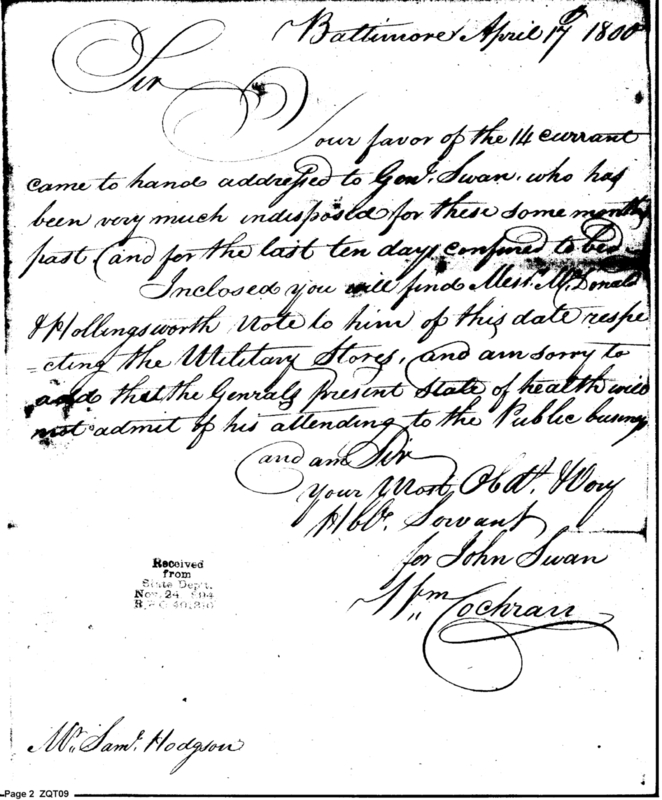 Baltimore April 17 1800
Sir
Your favor of the 14 currant
came to hand addressed to Genl. Swan, who has
been very much indisposed for these some months
past (and for the last ten days confined to bed
Inclosed you will find Messr. McDonald
& Hollingsworth Note to him of this date respe
=cting the Military Stores, and am sorry to
add that the Genrals present State of health will
not admit of his attending to the Public busines
and am Sir
your Most Obdt. & Very
Hble. Servant
for John Swan
Wm Cochran
Received
from
State Dep't.
Nov. 24, 1894
Mr. Saml. Hodgson
Page 2 ZQT09